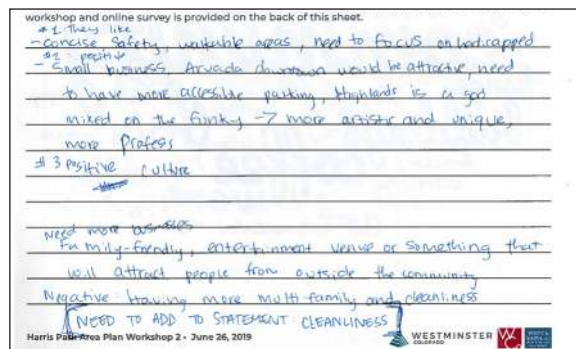 workshop and online survey is provided on the back of this sheet.
#1 They like
- concise, safety, walkable areas, need to focus on handicapped
#2 - positive
- Small business, Arvada downtown would be attractive, need
to have more accessible parking, Highlands is a
mixed on the funky → more artistic and unique,
more Profess
#3 Positive culture
Need more businesses
Family-friendly, entertainment venue or something that
will attract people from outside the community
Negative: Having more multi family and cleanliness
NEED TO ADD TO STATEMENT: CLEANLINESS
Harris Park Area Plan Workshop 2 - June 26, 2019
WESTMINSTER
COLORADO